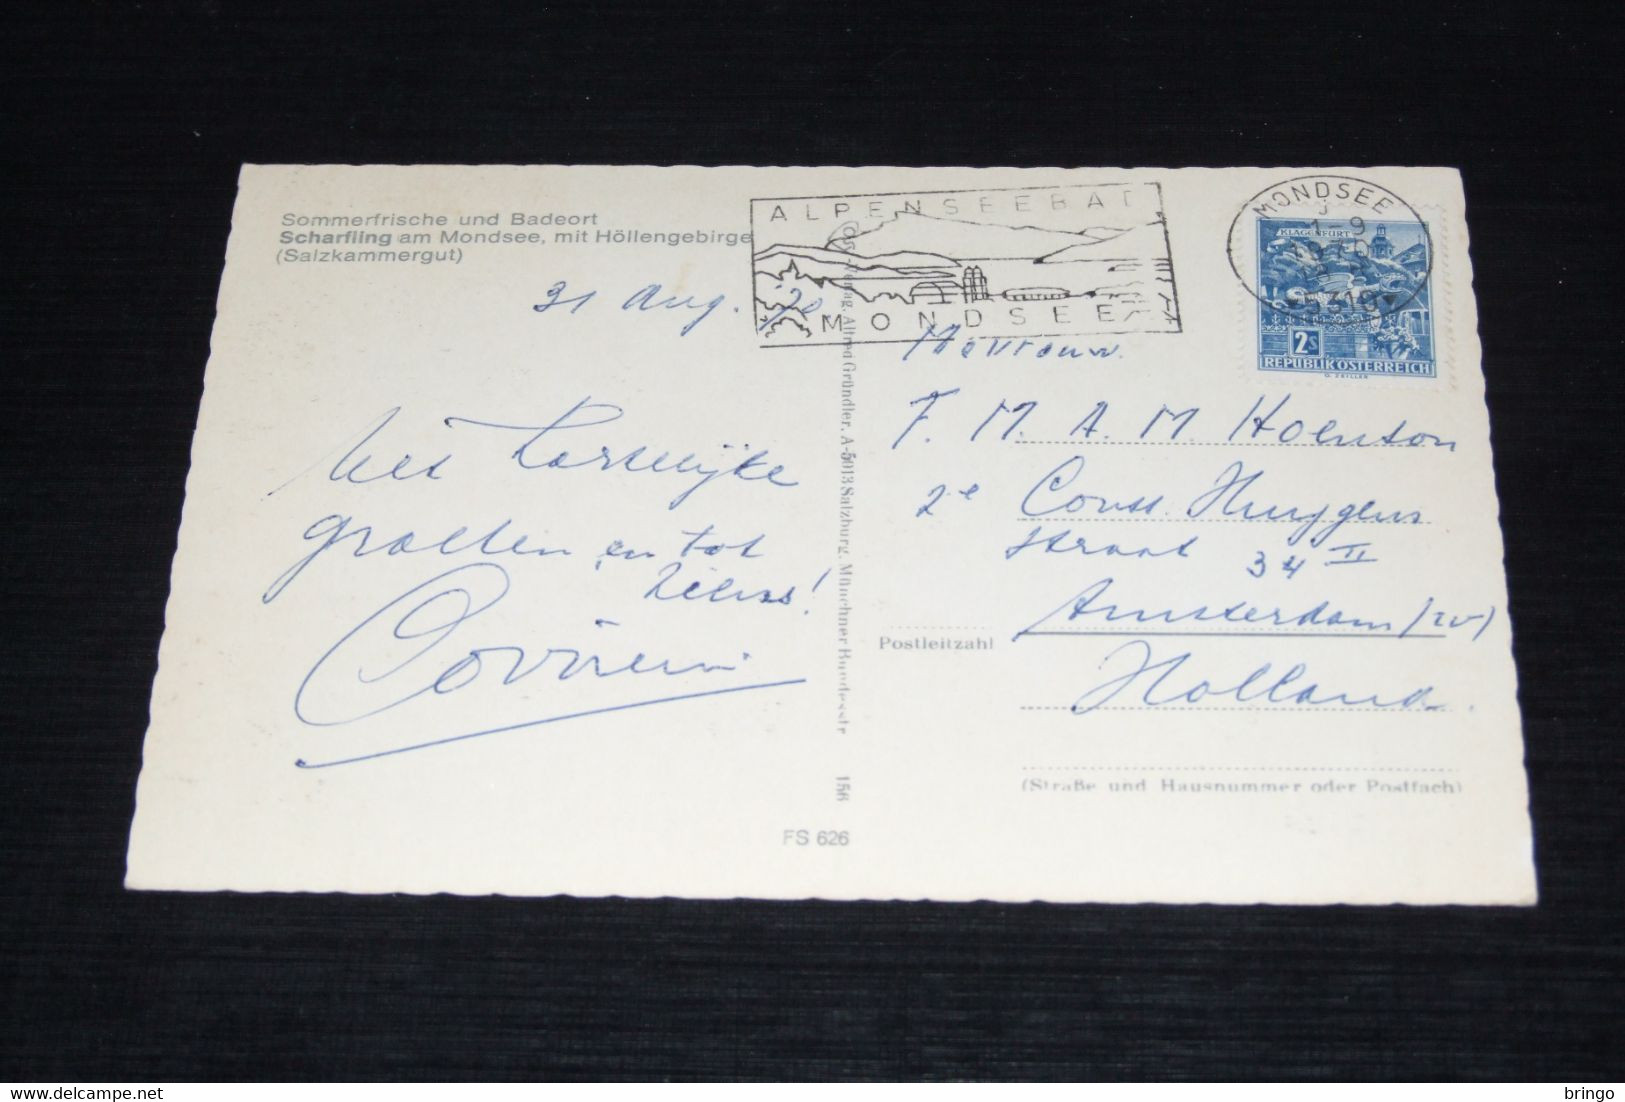 Sommerfrische und Badeort
Scharfling am Mondsee, mit Höllengebirge
(Salzkammergut)
31 Aug. '70
Met Karselijke
groeten en tot
ziens!
ALPENSEEBAD
MONDSEE
MONDSEE
1-9
1970
5310
KLAGENFURT
2S
REPUBLIK ÖSTERREICH
G. ZEILLER
Mevrouw.
F. M. A. M. Hoenson
2e Const. Huygens
straat 34 II
Amsterdam (W)
Holland.
Postleitzahl
(Straße und Hausnummer oder Postfach)
Verlag Alfred Gründler, A-5013 Salzburg, Münchner Bundesstr
156
FS 626
bringo